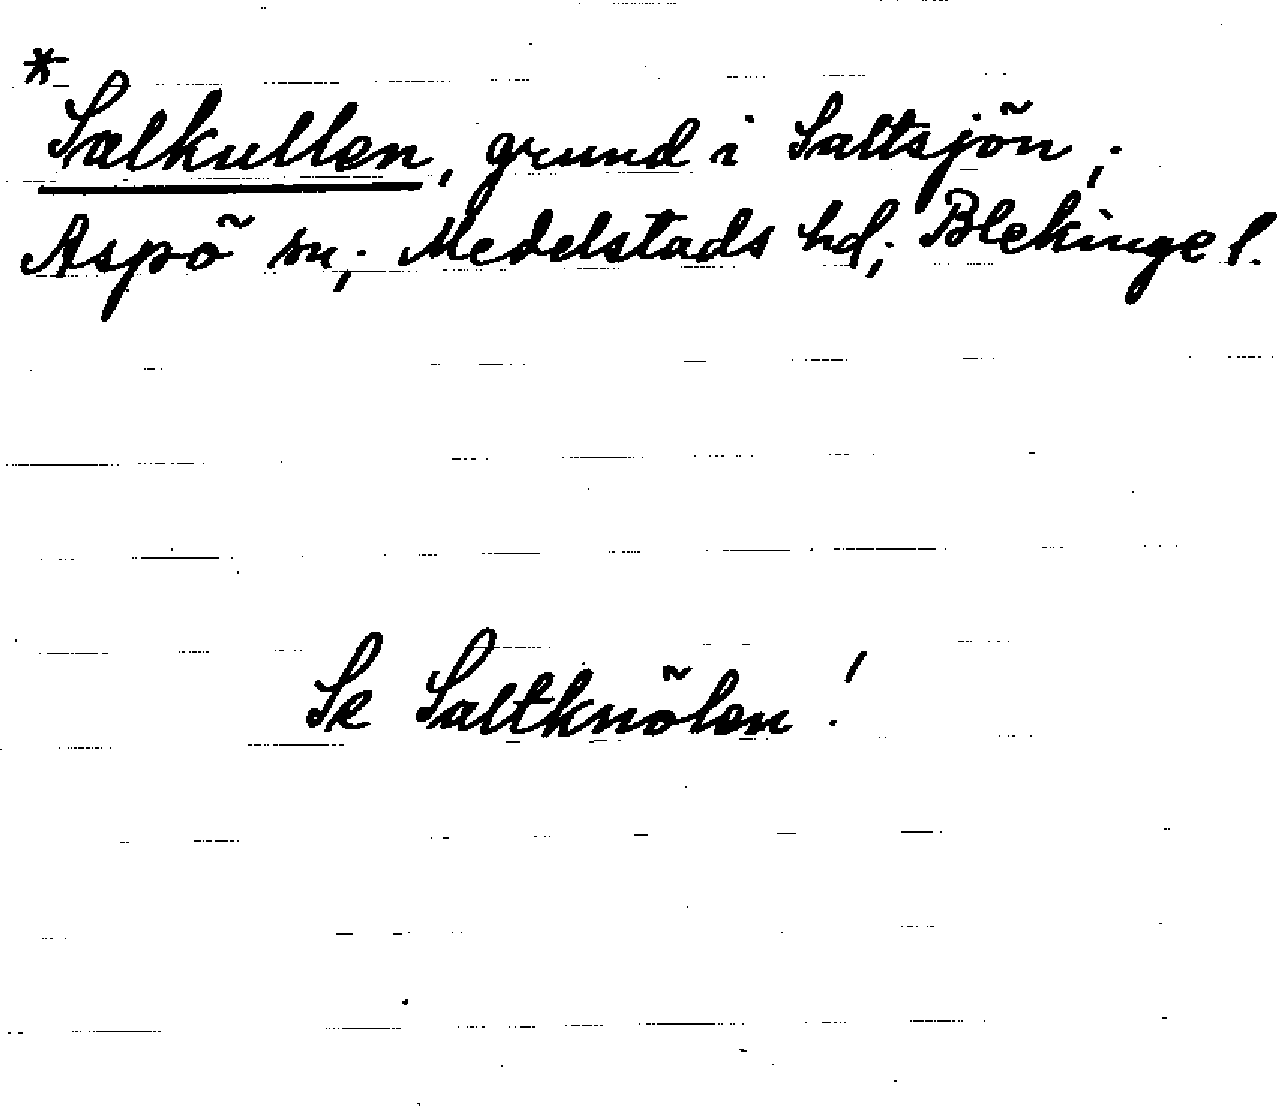 *
Salkullen, grund i Saltsjön;
Aspö sn; Medelstads hd; Blekinge l.
Se Saltknölen!